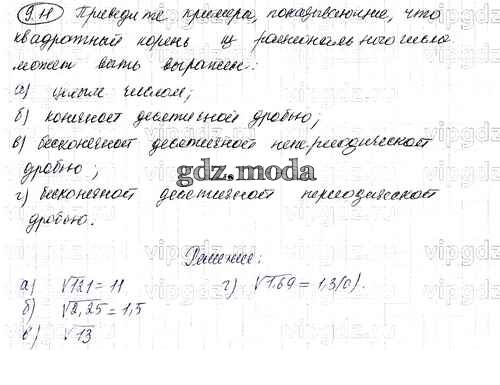 9.11 Приведите примеры, показывающие, что
квадратный корень из рационального числа
может быть выражен:
а) целым числом;
б) конечной десятичной дробью;
в) бесконечной десятичной непериодической
дробью;
gdz.moda
г) бесконечной десятичной периодической
дробью.
Решение:
а) √121 = 11 г) √1,69 = 1,3(0).
б) √2,25 = 1,5
в) √13